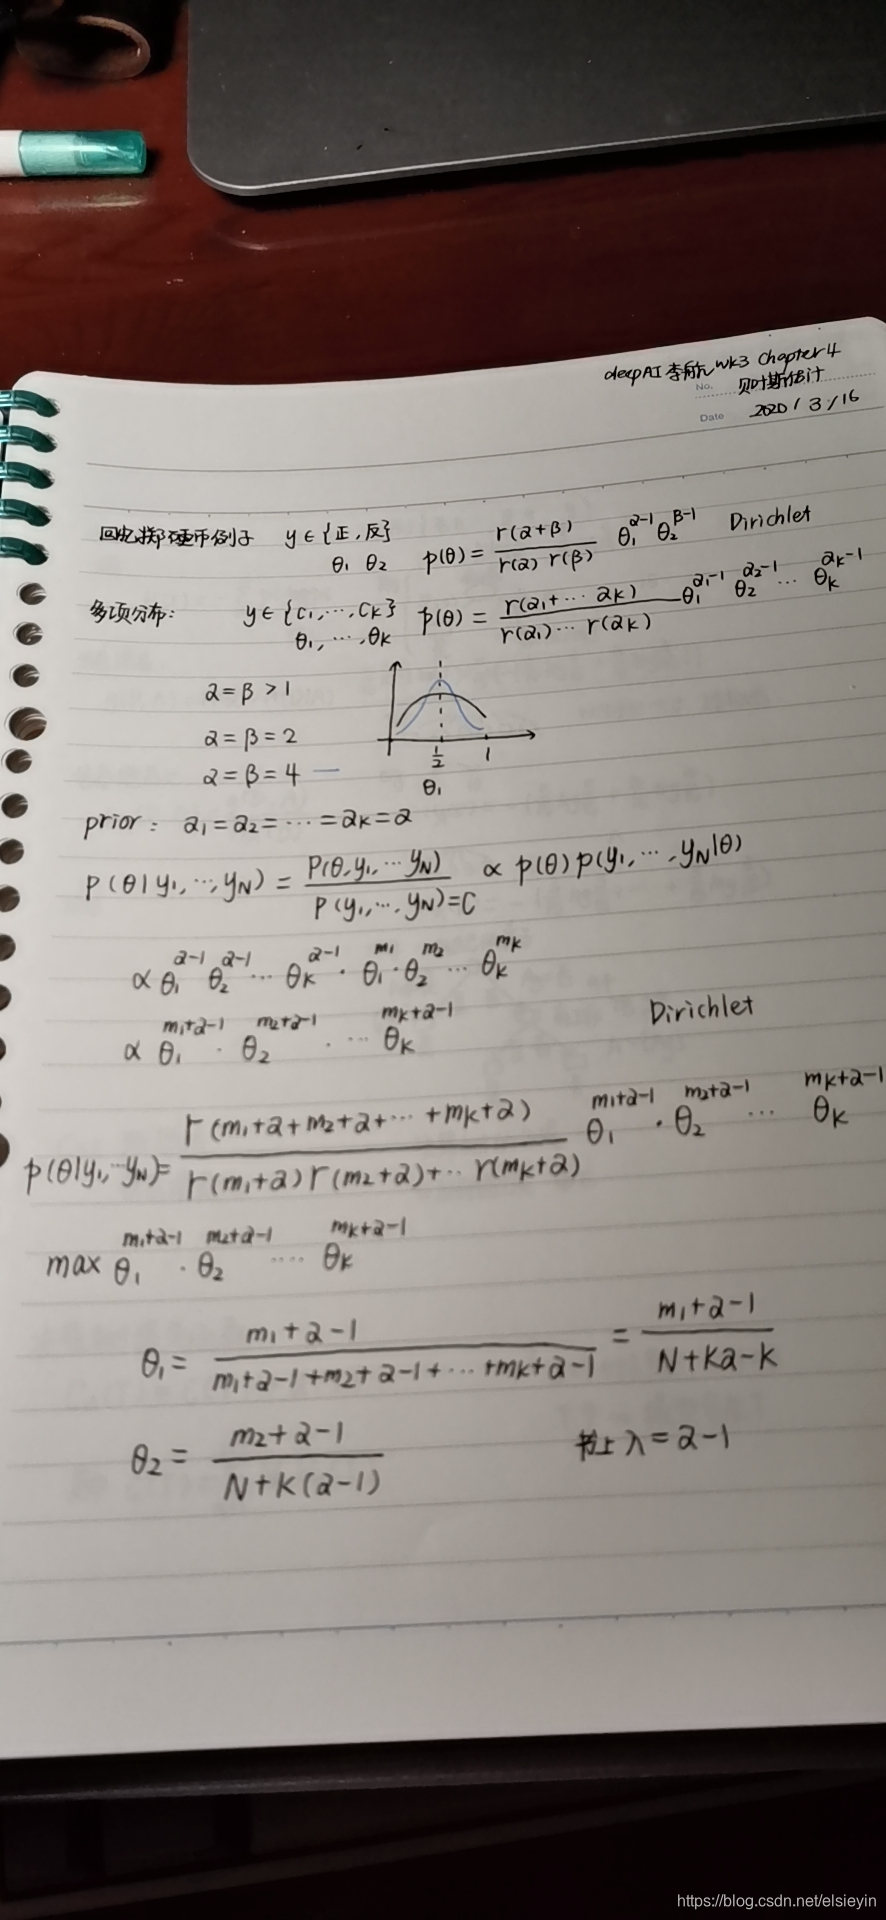 deepAI 李航 wk3 Chapter 4
No. 贝叶斯估计
Date 2020 / 3 / 16
回忆掷硬币例子 y ∈ {正, 反} p(θ) = r(α+β) / r(α) r(β) θ₁^(α-1) θ₂^(β-1) Dirichlet
θ₁ θ₂
多项分布: y ∈ {C₁, ..., Cₖ} p(θ) = r(α₁+ ... αₖ) / r(α₁) ... r(αₖ) θ₁^(α₁-1) θ₂^(α₂-1) ... θₖ^(αₖ-1)
θ₁, ..., θₖ
α = β > 1
α = β = 2
α = β = 4 —
1/2 1
θ₁
prior: α₁ = α₂ = ... = αₖ = α
P(θ | y₁, ..., y_N) = P(θ, y₁, ... y_N) / P(y₁, ..., y_N) = C ∝ p(θ) p(y₁, ..., y_N | θ)
∝ θ₁^(α-1) θ₂^(α-1) ... θₖ^(α-1) · θ₁^(m₁) · θ₂^(m₂) ... θₖ^(mₖ)
∝ θ₁^(m₁+α-1) · θ₂^(m₂+α-1) · ... θₖ^(mₖ+α-1) Dirichlet
p(θ | y₁, ... y_N) = r(m₁+α+m₂+α+ ... +mₖ+α) / r(m₁+α) r(m₂+α)+ ... r(mₖ+α) θ₁^(m₁+α-1) · θ₂^(m₂+α-1) ... θₖ^(mₖ+α-1)
max θ₁^(m₁+α-1) · θ₂^(m₂+α-1) .... θₖ^(mₖ+α-1)
θ₁ = m₁+α-1 / m₁+α-1+m₂+α-1+ ... +mₖ+α-1 = m₁+α-1 / N+Kα-K
θ₂ = m₂+α-1 / N+K(α-1) 书上 λ = α-1
https://blog.csdn.net/elsieyin